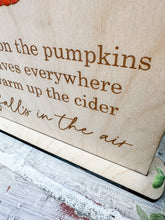 on the pumpkins
aves everywhere
arm up the cider
falls in the air